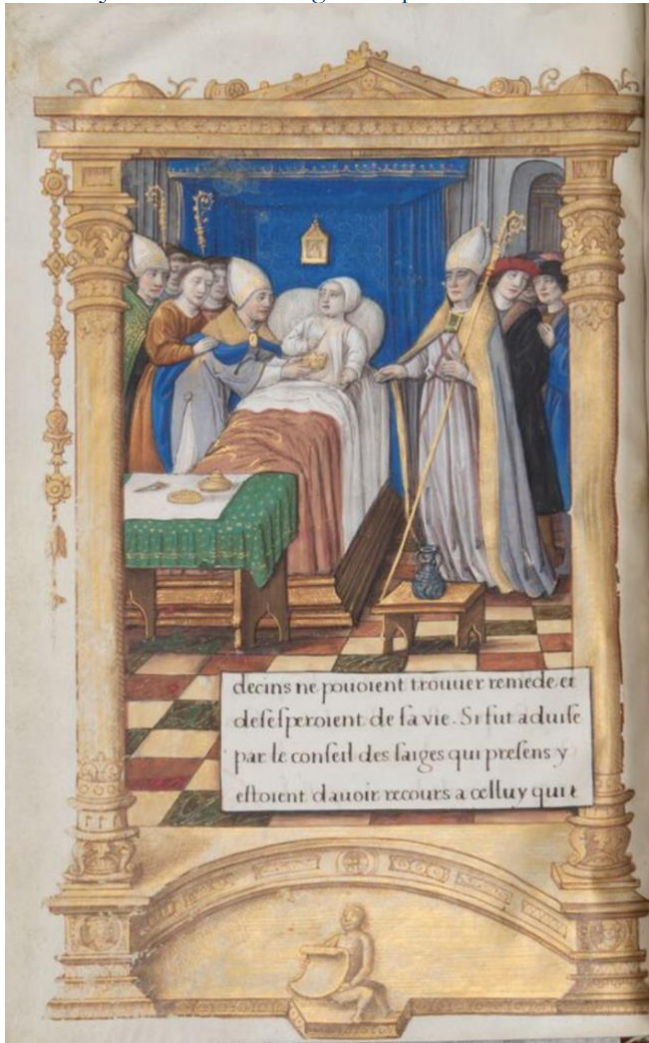 decins ne pouoient trouuer remede et
desesperoient de sa vie. Si fut aduise
par le conseil des saiges qui presens y
estoient dauoir recours a celluy qui e